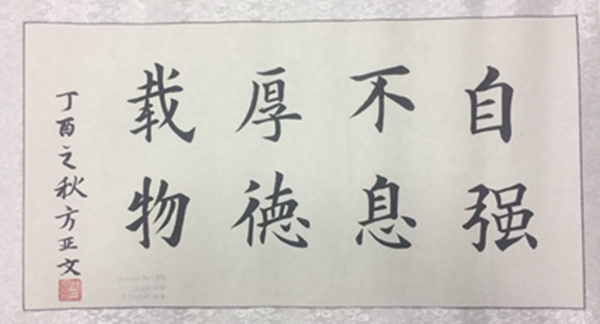 自强
不息
厚德
载物
丁酉之秋方正文